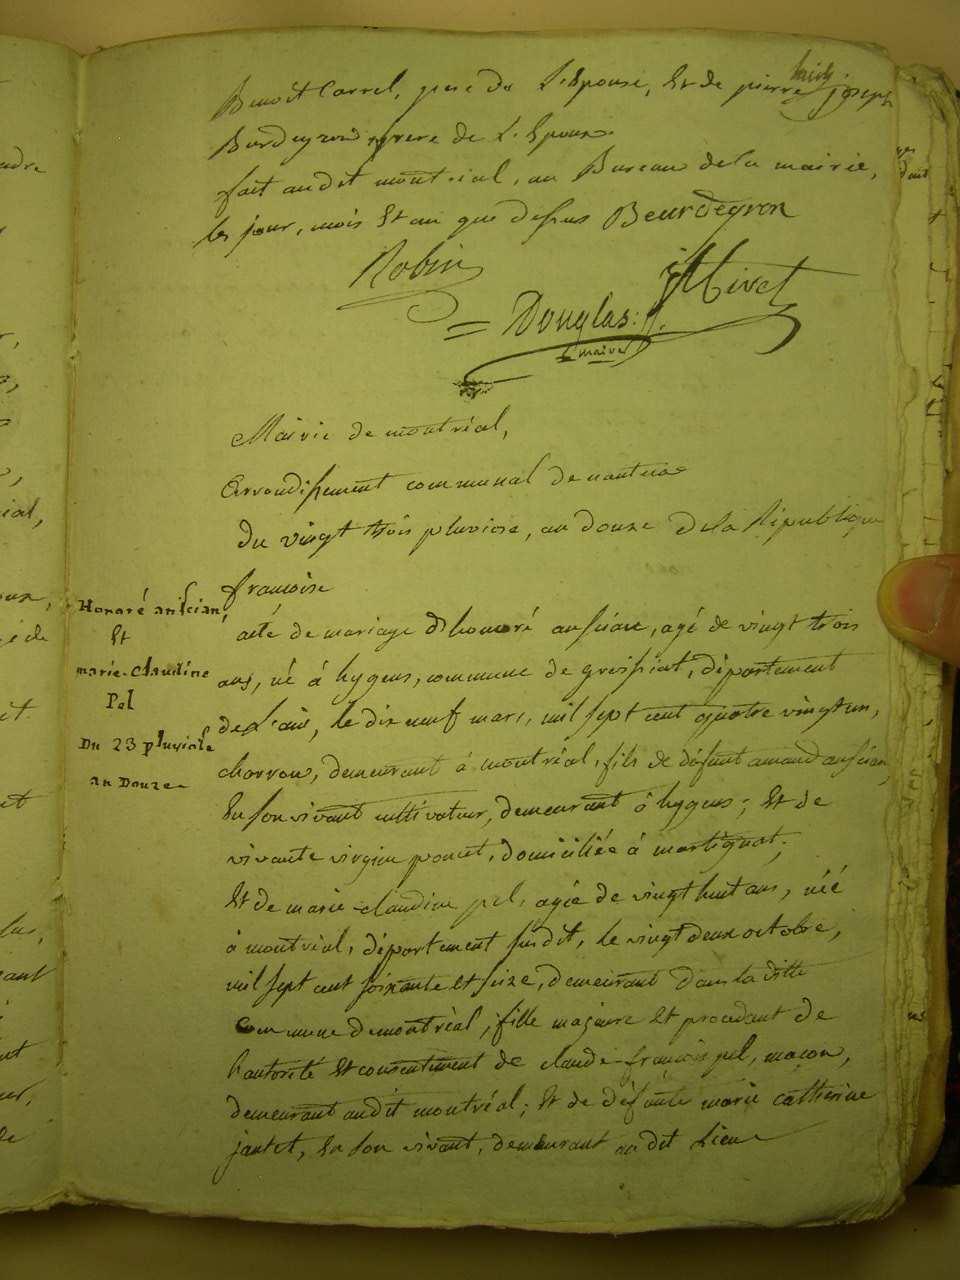 Benoit Carrel, pere de L'Epouse, Et de pierre joseph
Burdeyron frere de L'Epoux.
fait audit montréal, au Bureau de la mairie,
les jour, mois Et an que dessus Beurdeyron
Robin
Douglas
maire
Mairie de montréal,
Arrondissement communal de nantua
du vingt trois pluviose, an douze de la République
francoise
Honoré anscian
Et
marie-claudine
Pel
Du 23 pluviose
an Douze
acte de mariage d'honoré anscian, agé de vingt trois
ans, né à hygens, commune de greissiat, département
de L'ain, le dix neuf mars, mil sept cent quatre vingt un,
charron, demeurant à montréal, fils de défunt amand anscian,
En son vivant cultivateur, demeurant à hygens; Et de
vivante virgine poncet, domiciliée à martignat;
Et de marie-claudine pel, agée de vingt huit ans, née
à montréal, département susdit, le vingt deux octobre,
mil sept cent soixante et seize, demeurant dans la ditte
commune de montréal; fille majeure Et procedant de
l'autorité Et consentiment de claude-françois pel, maçon,
demeurant audit montréal; Et de défunte marie catherine
jantet, En son vivant, demeurant au dit Lieu